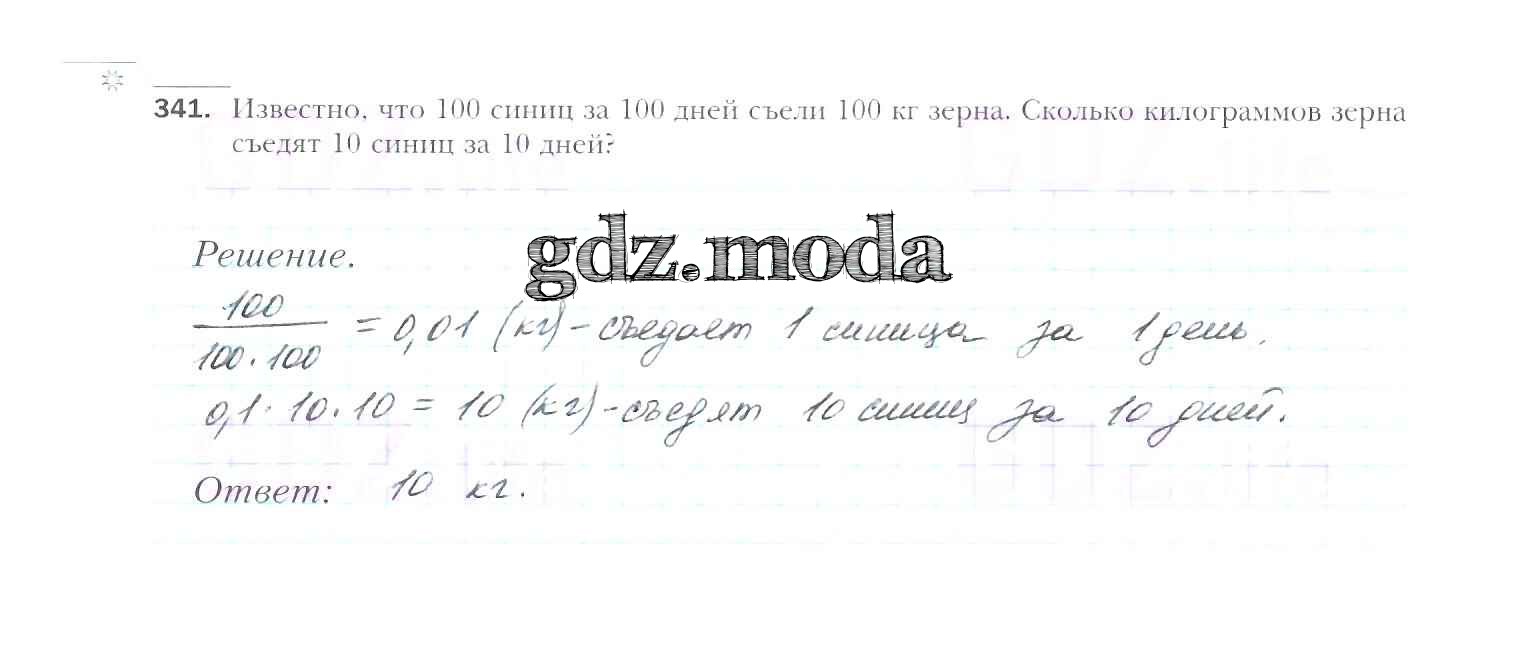 341. Известно, что 100 синиц за 100 дней съели 100 кг зерна. Сколько килограммов зерна
съедят 10 синиц за 10 дней?
gdz.moda
Решение.
100
100·100
= 0,01 (кг) - съедает 1 синица за 1 день.
0,1·10·10 = 10 (кг) - съедят 10 синиц за 10 дней.
Ответ: 10 кг.